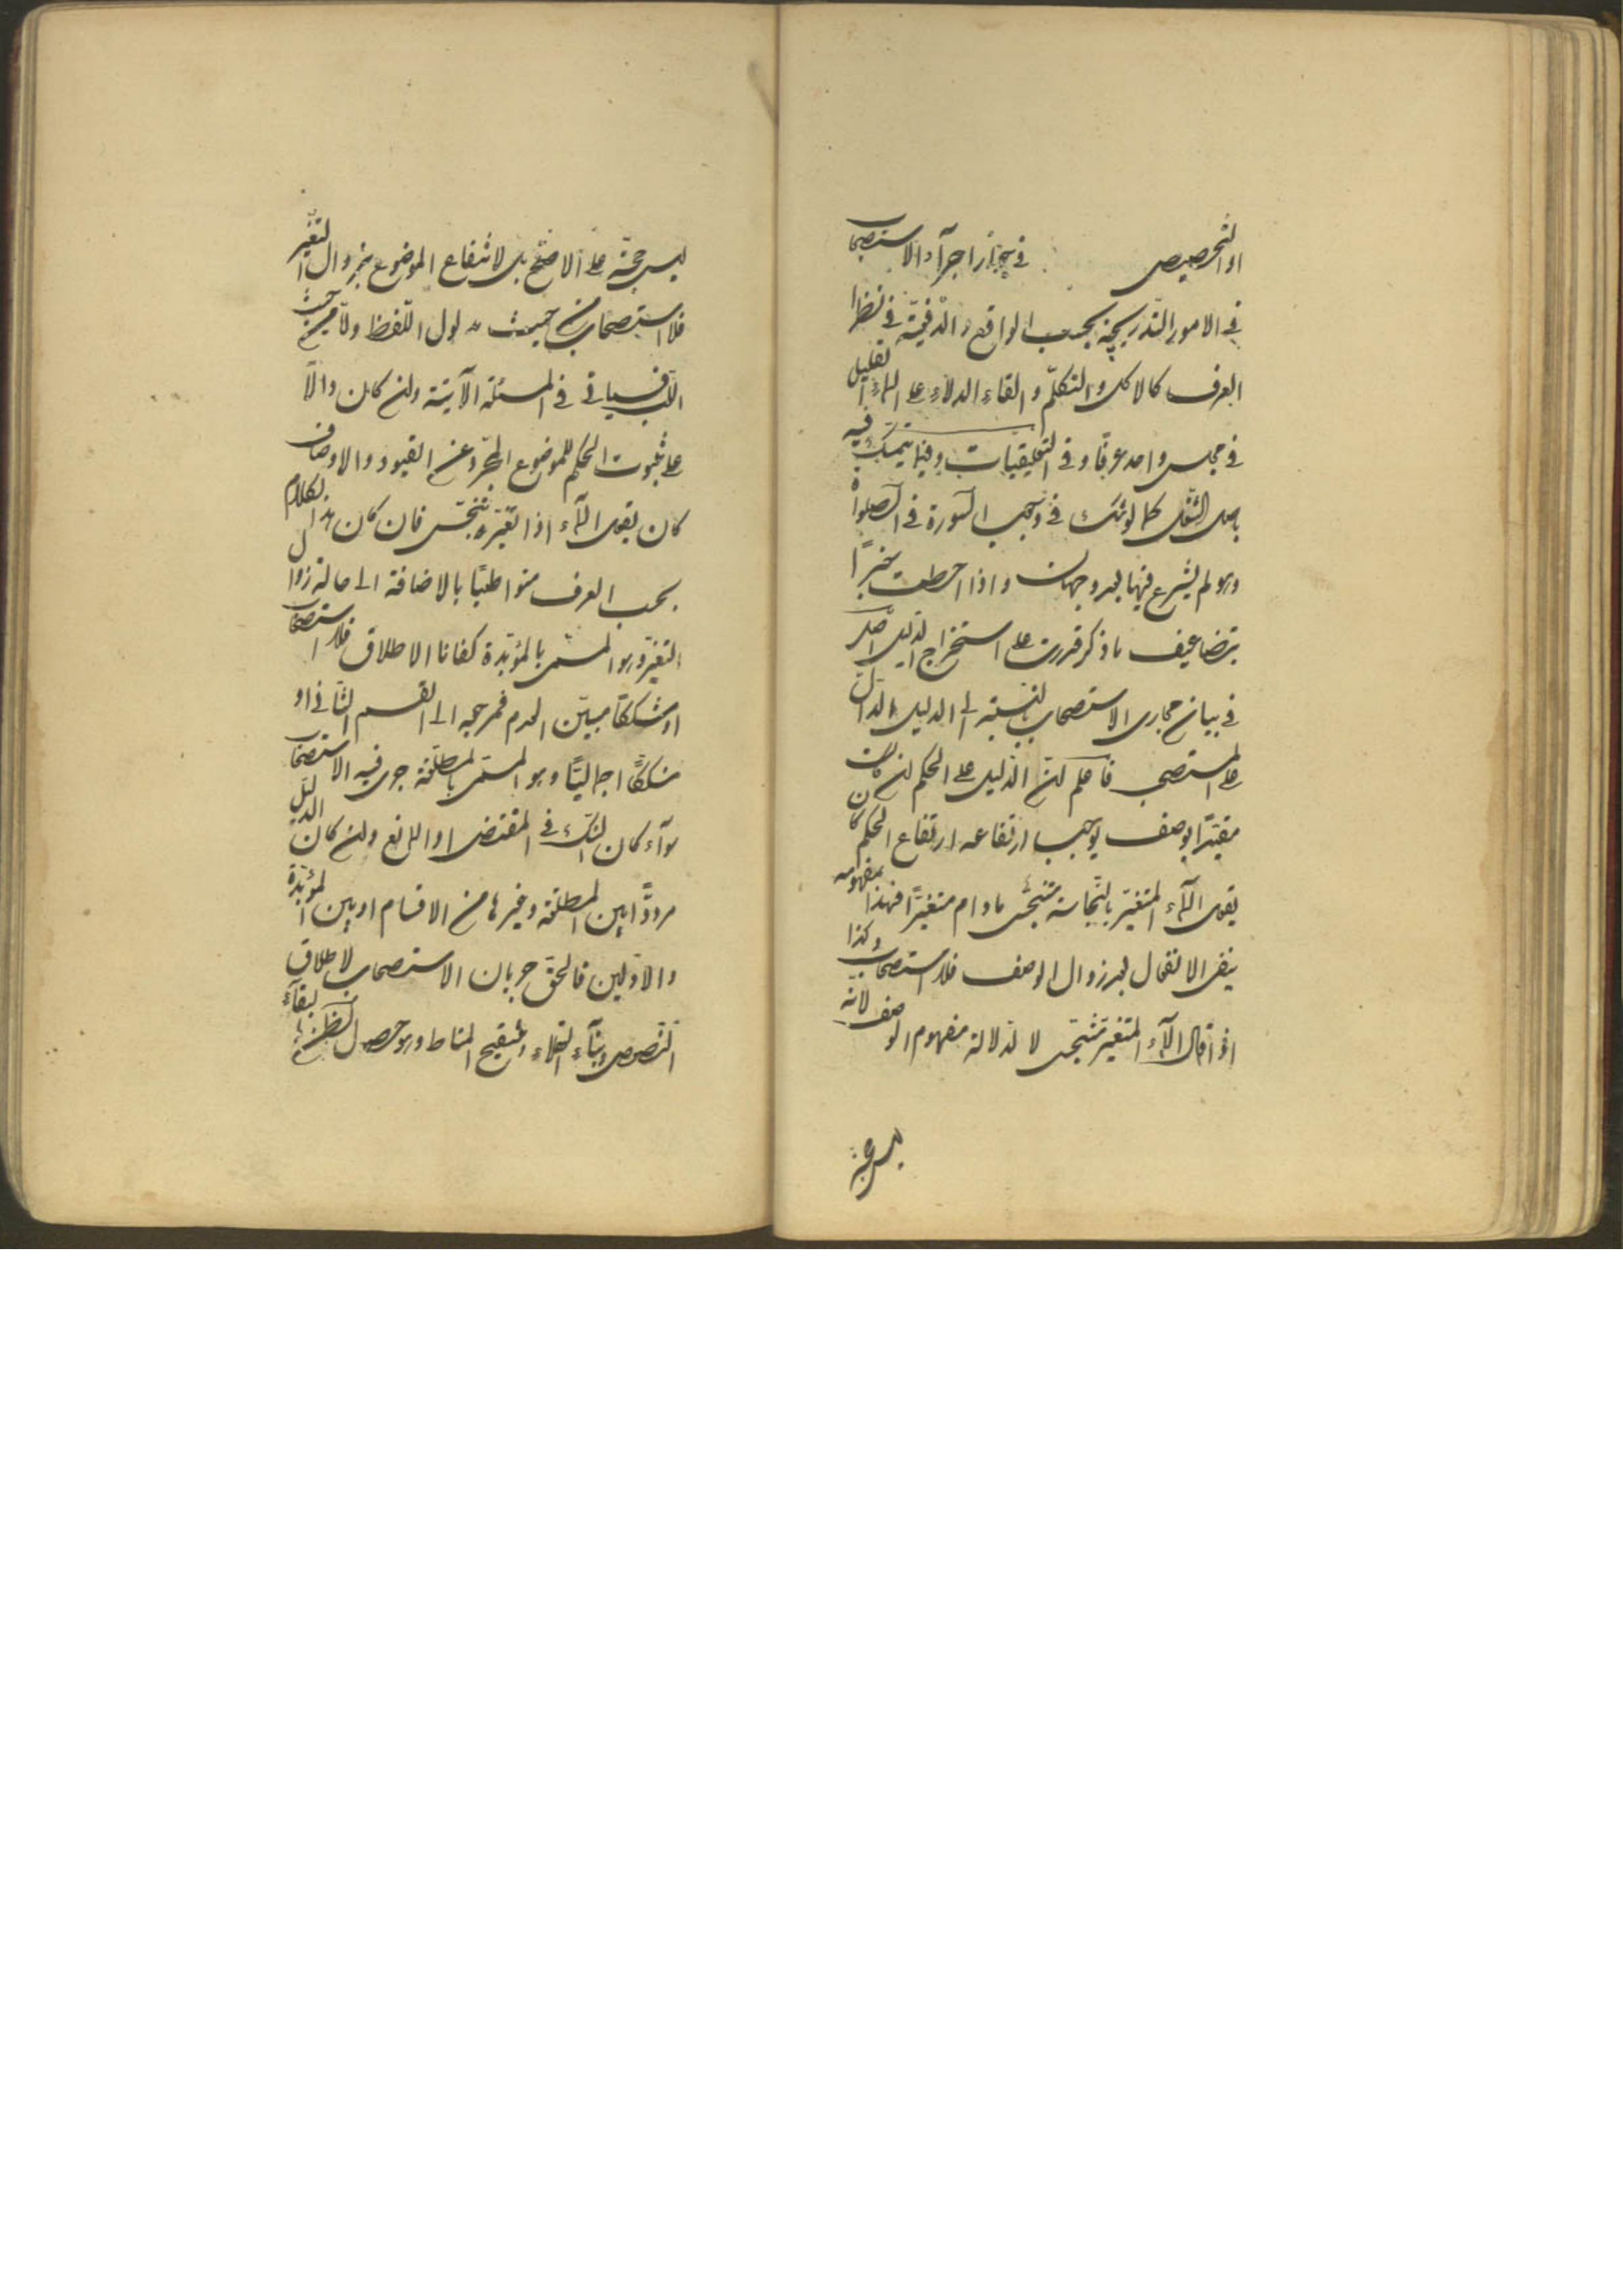 او التخصيص في جواز اجرآء الاستصحاب
في الامور التدريجية بحسب الواقع والدفعية في نظر
العرف كالاكل والتكلم و القاء الدلاء على الماء القليل
في مجلس واحد عرفا وفي التعليقيات وفيما يتمسك فيه
باصل الشغل كما لو شك في وجوب السورة في الصلوة
وهو لم يشرع فيها بعد وجهان واذا احطت خبرًا
بتضاعيف ما ذكر قدرت على استخراج الدليل اصل
في بيان مجارى الاستصحاب بالنسبة الى الدليل الدال
على المستصحب فاعلم انّ الدليل على الحكم ان كان
مقيدًا بوصف يوجب ارتفاعه ارتفاع الحكم كان
يقول المآء المتغير بالنجاسة متنجس مادام متغيرًا فهذا بمفهومه
ينفى الانفعال بعد زوال الوصف فلا استصحاب وكذا
اذا قال المآء المتغير متنجس لا لدلالة مفهوم الوصف لانه
ليس حجة
ليس حجة على الاصح بل لانتفاع الموضوع بزوال التغير
فلا استصحاب من حيث مدلول اللفظ وامّا من حيث
اللب فسياتى في المسئلة الآتية وان كان دالًا
على ثبوت الحكم للموضوع المجرد عن القيود والاوصاف
كان يقول المآء اذا تغيّر تنجّس فان كان هذا الكلام
بحسب العرف متواطيًا بالاضافة الى حالة زوال
التغير وهو المسمى بالمؤبدة كفانا الاطلاق فلا استصحاب
او مشككًا مبيّن العدم فمرجعه الى القسم الثانى او
مشككًا اجماليًا وهو المسمى بالمطلقة جرى فيه الاستصحاب
سوآء كان الشك في المقتضى او المانع وان كان الدليل
مرددًا بين المطلقة وغيرها من الاقسام او بين المؤبدة
والاولين فالحق جريان الاستصحاب لاطلاق
النصوص وبنآء العقلاء وتنقيح المناط وهو حصول الظن ببقآء